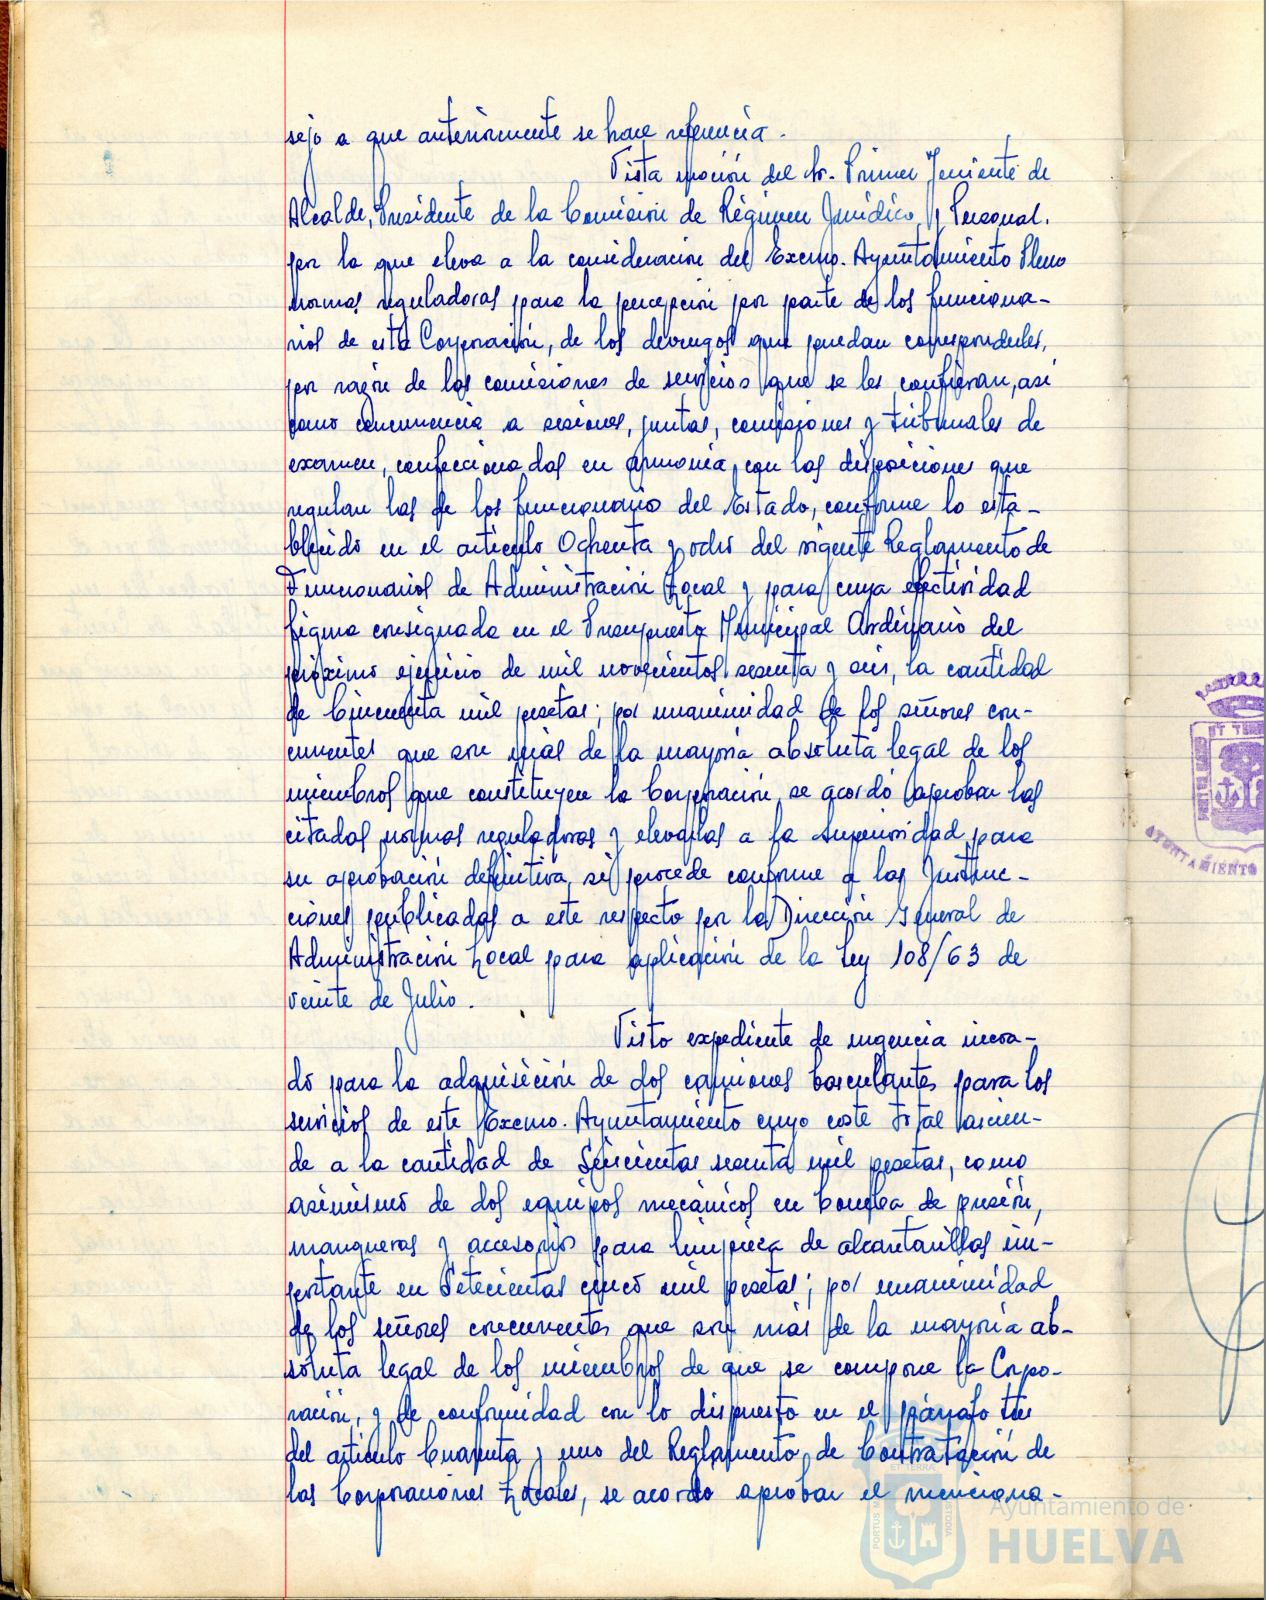 sejo a que anteriormente se hace referencia.
Vista moción del Sr. Primer Teniente de
Alcalde, Presidente de la Comisión de Régimen Jurídico y Personal,
por la que eleva a la consideración del Excmo. Ayuntamiento Pleno
normas reguladoras para la percepción por parte de los funciona-
rios de esta Corporación, de los devengos que puedan corresponderles,
por razón de las comisiones de servicios que se les confieran, así
como concurrencia a sesiones, juntas, comisiones y tribunales de
examen, confeccionadas en armonía con las disposiciones que
regulan las de los funcionarios del Estado, conforme lo esta-
blecido en el artículo Ochenta y ocho del vigente Reglamento de
Funcionarios de Administración Local y para cuya efectividad
figura consignada en el Presupuesto Municipal Ordinario del
próximo ejercicio de mil novecientos sesenta y seis, la cantidad
de Cincuenta mil pesetas; por unanimidad de los señores con-
currentes que son más de la mayoría absoluta legal de los
miembros que constituyen la Corporación, se acordó aprobar las
citadas normas reguladoras y elevarlas a la Superioridad para
su aprobación definitiva, si procede conforme a las Instruc-
ciones publicadas a este respecto por la Dirección General de
Administración Local para aplicación de la Ley 108/63 de
veinte de Julio.
Visto expediente de urgencia incoa-
do para la adquisición de dos camiones basculantes para los
servicios de este Excmo. Ayuntamiento cuyo coste total ascien-
de a la cantidad de Seiscientas sesenta mil pesetas, como
asimismo de dos equipos mecánicos en bomba de presión,
mangueras y accesorios para limpieza de alcantarillas im-
portante en Setecientas cinco mil pesetas; por unanimidad
de los señores concurrentes que son más de la mayoría ab-
soluta legal de los miembros de que se compone la Corpo-
ración, y de conformidad con lo dispuesto en el párrafo tres
del artículo Cuarenta y uno del Reglamento de Contratación de
las Corporaciones Locales, se acordó aprobar el menciona-
AYUNTAMIENTO
Ayuntamiento de
HUELVA